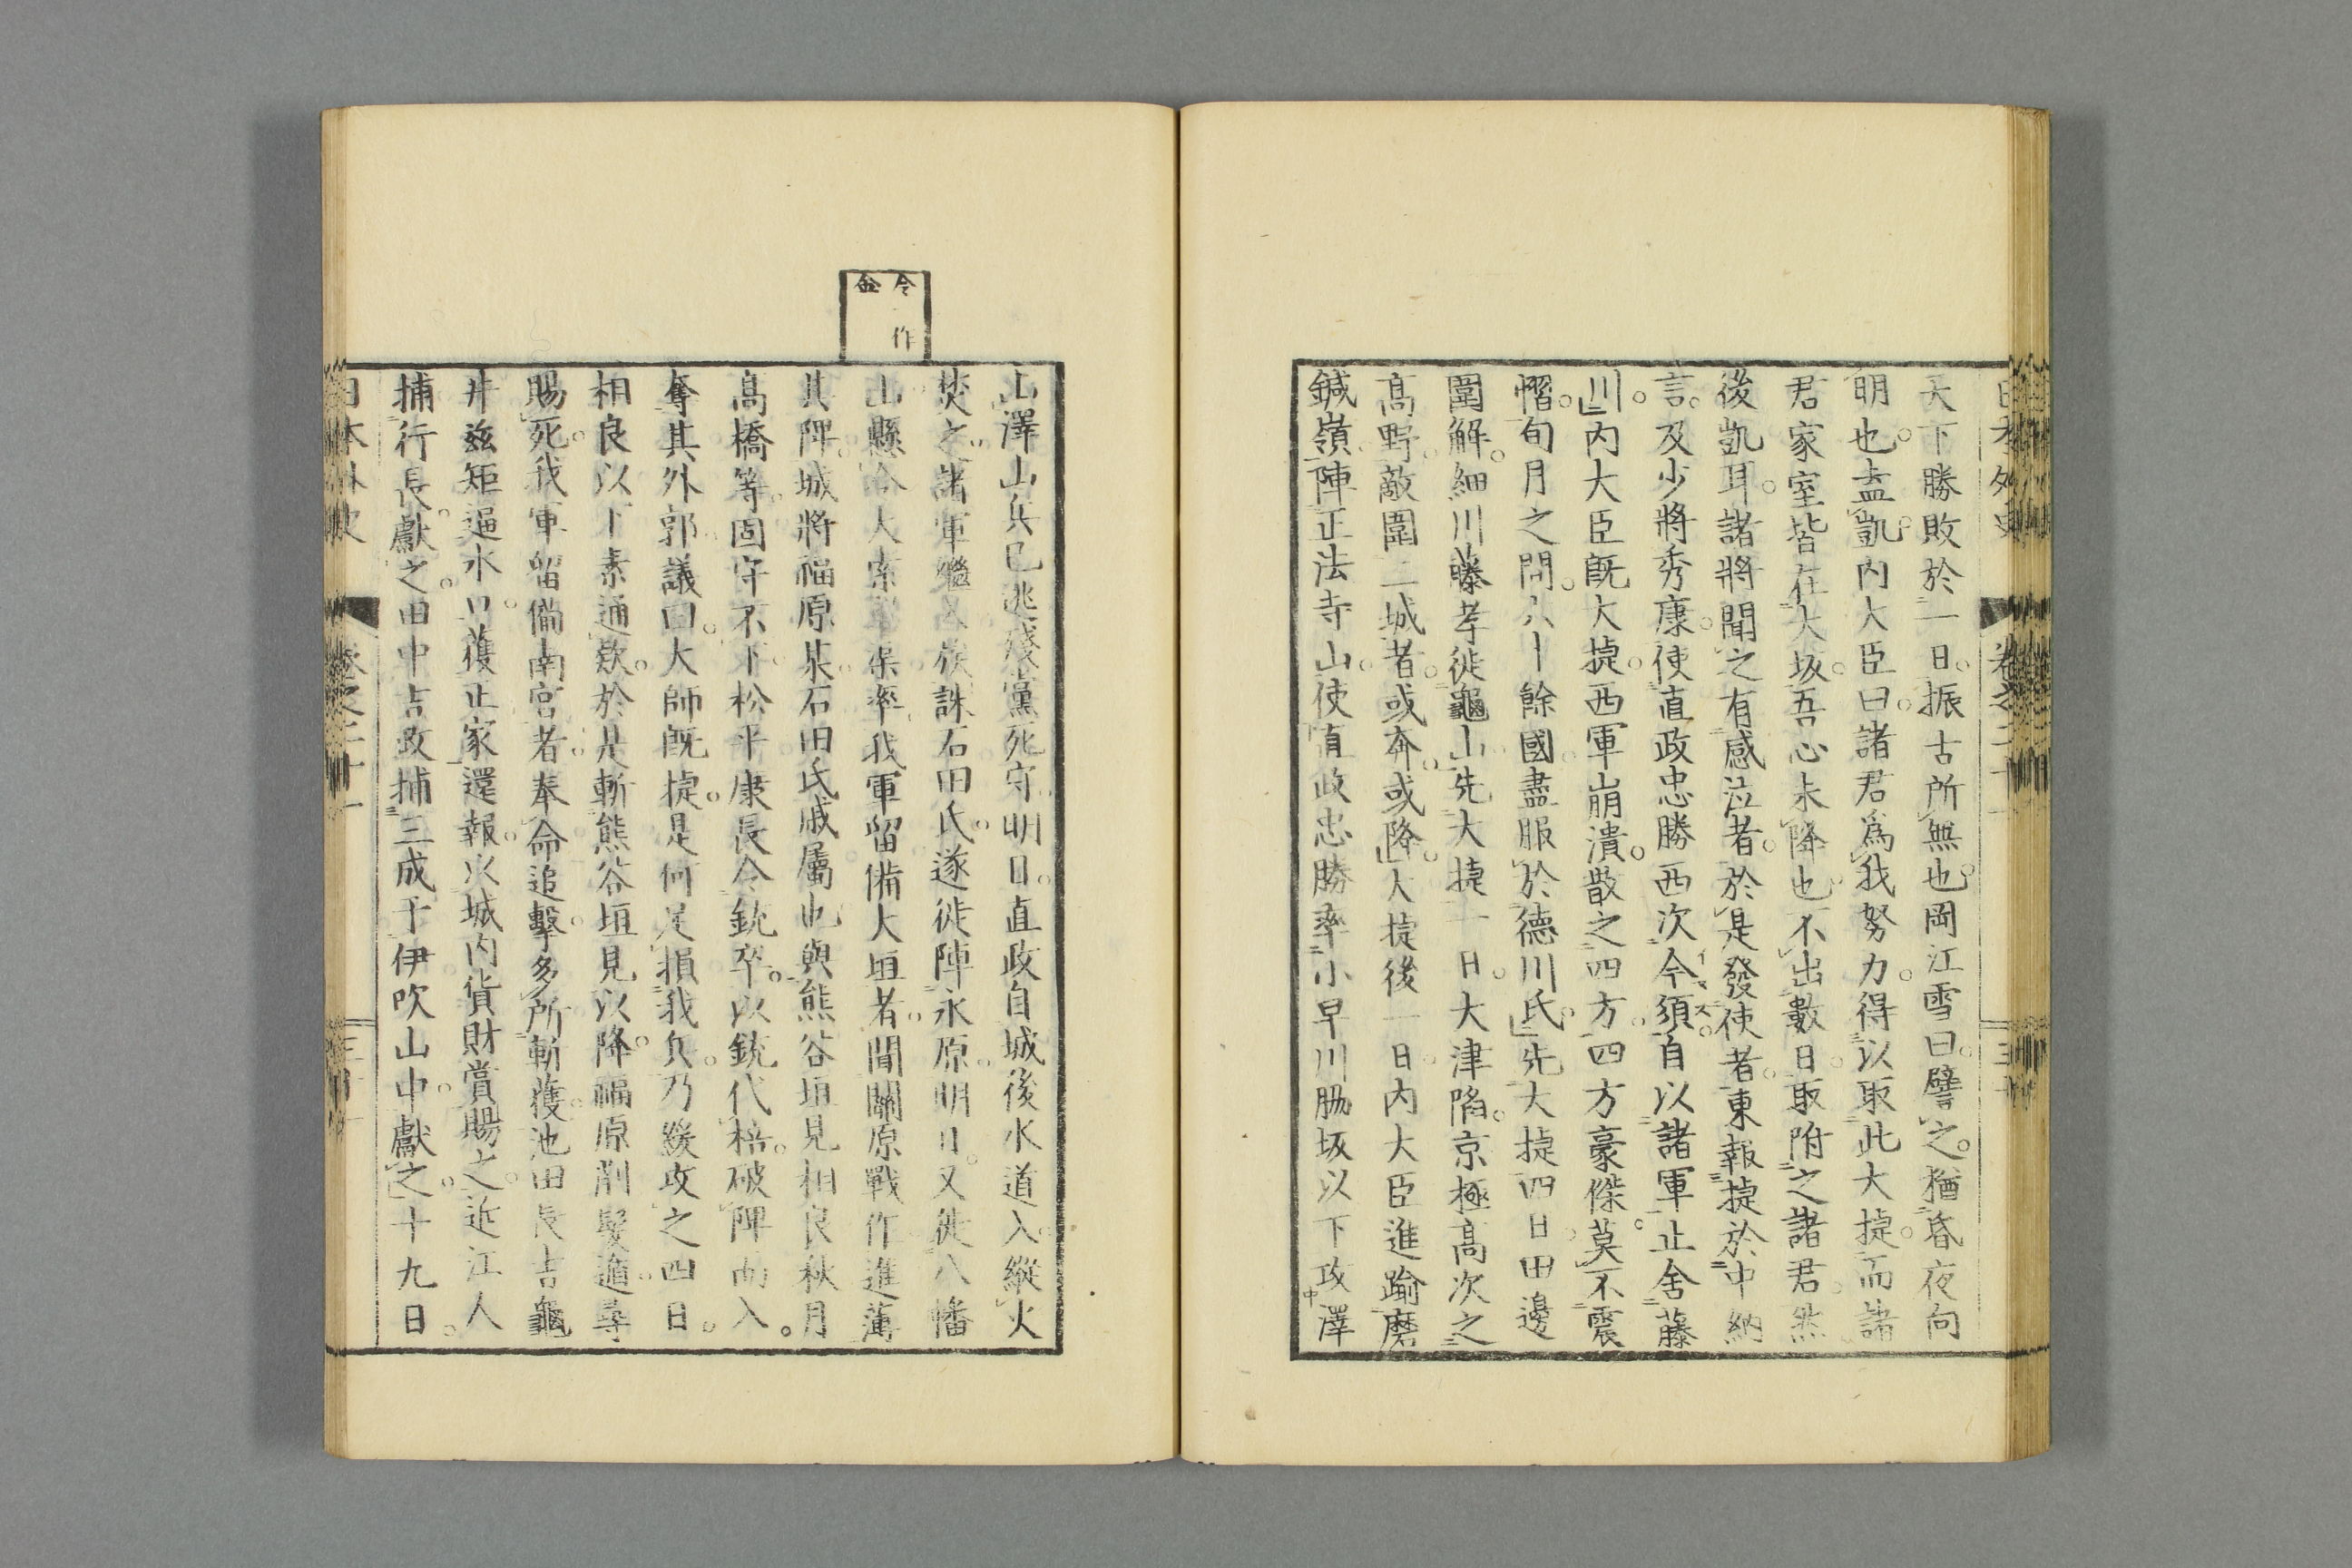 日本外史 卷之二十一
天下勝敗於一日。振古所無也。岡江雪曰。譬之。猶昏夜向
明也。盍凱。內大臣曰。諸君爲我努力。得以取此大捷。而諸
君家室皆在大坂。吾心未降也。不出數日。取附之諸君。然
後凱耳。諸將聞之有感泣者。於是發使者。東報捷於中納
言。及少將秀康。使直政忠勝西次今須。自以諸軍止舍藤
川。」內大臣既大捷。西軍崩潰。散之四方。四方豪傑。莫不震
慴。旬月之間。六十餘國。盡服於德川氏。」先大捷四日。田邊
圍解。細川藤孝徙龜山。先大捷一日。大津陷。京極高次之
高野。敵圍二城者。或奔。或降。」大捷後一日。內大臣進踰磨
鍼嶺。陣正法寺山。使直政忠勝。率小早川脇坂以下攻澤
山。澤山兵已逃。殘黨死守。明日。直政自城後水道入。縱火
焚之。諸軍繼入。族誅石田氏。遂徙陣永原。明日。又徙八幡
山。縣令大索
率我軍留備大垣者。聞關原戰作。進薄
其陴。城將福原某。石田氏戚屬也。與熊谷垣見相良秋月
高橋等。固守不下。松平康長令銃卒。以銃代棓。破陴而入。
奪其外郭。議曰。大師既捷。是何足損我兵。乃緩攻之四日。
相良以下素通欵。於是斬熊谷垣見以降。福原削髮遁。尋
賜死。我軍留備南宮者。奉命追擊。多所斬獲。池田長吉龜
井茲矩逼水口。獲正家還報。以城內貨財賞賜之。近江人
捕行長。獻之。田中吉政捕三成于伊吹山中。獻之。」十九日。
日本外史 卷之二十一
令作